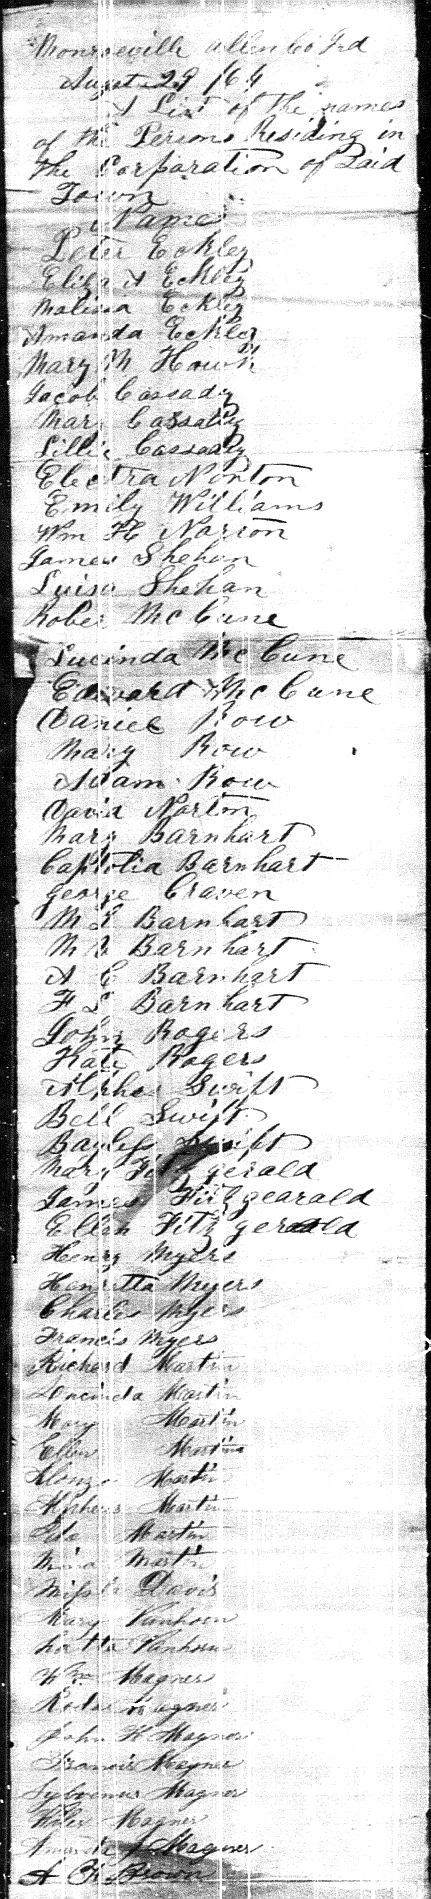 Monroeville Allen Co Ind
August 29 /64
A List of the names
of the Persons Residing in
the Corporation of Said
Town
Names
Peter Eckley
Eliza A Eckley
Malissa Eckley
Amanda Eckley
Mary M Hawk
Jacob Cassady
Mary Cassady
Lillie Cassady
Electra Norton
Emily Williams
Wm H Narron
James Shehan
Luisa Shehan
Rober McCune
Lucinda McCune
Edward McCune
Daniel Row
Mary Row
Adam Row
David Norton
Mary Barnhart
Capitolia Barnhart
George Craven
M L Barnhart
M B Barnhart
A C Barnhart
F L Barnhart
John Rogers
Kate Rogers
Alphes Swift
Bell Swift
Bayless Swift
Mary Fitzgerald
James Fitzgearald
Ellen Fitzgerald
Henry Myers
Henrietta Myers
Charles Myers
Francis Myers
Richard Martin
Lucinda Martin
Mary Martin
Ellen Martin
Alonzo Martin
Alpheus Martin
Martin
Mina Martin
Davis
Mary Vanhorn
Vanhorn
Wm Magner
Magner
John H Magner
Francis Magner
Sylvenus Magner
Magner
Amanda J Magner
A Brown